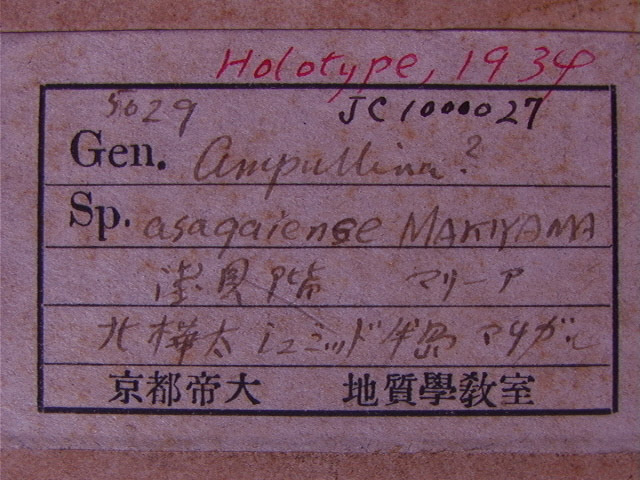 Holotype, 1934
5029 JC1000027
Gen. Ampullina?
Sp. asagaiense MAKIYAMA
浅貝階 マリーア
北樺太シュミット半島 マリガル
京都帝大 地質學教室